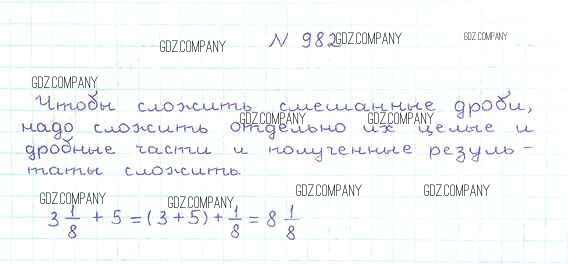 N 982 GDZ.COMPANY GDZ.COMPANY
GDZ.COMPANY
GDZ.COMPANY
Чтобы сложить смешанные дроби,
GDZ.COMPANY GDZ.COMPANY
надо сложить отдельно их целые и
дробные части и полученные резуль-
таты сложить.
GDZ.COMPANY GDZ.COMPANY
GDZ.COMPANY GDZ.COMPANY
3 1/8 + 5 = (3 + 5) + 1/8 = 8 1/8